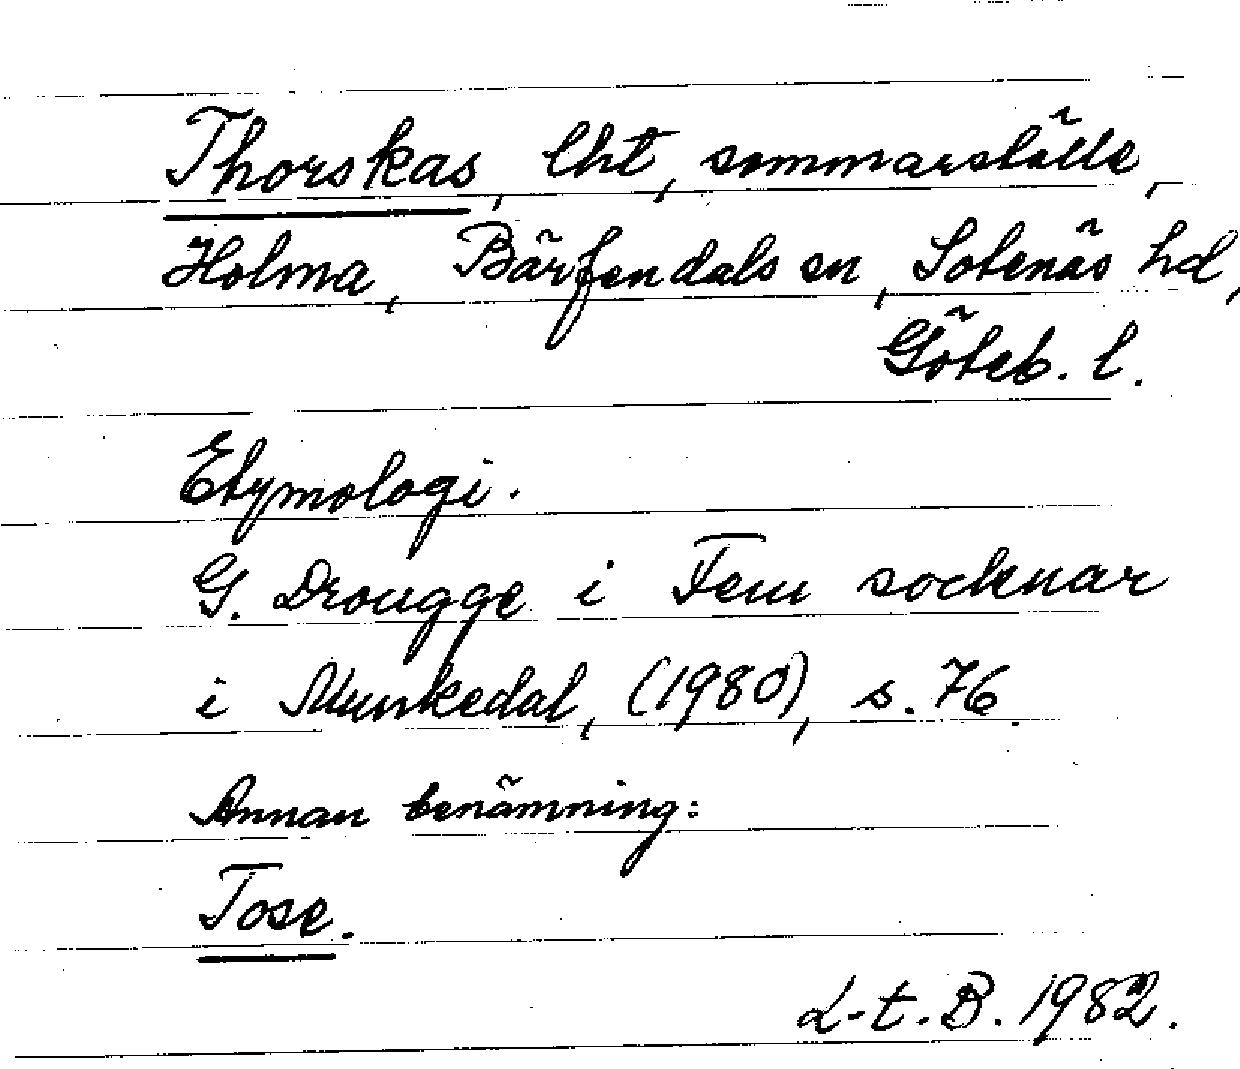 Thorskas, lht, sommarställe,
Holma, Bärfendals sn, Sotenäs hd,
Göteb. l.
Etymologi.
G. Drougge i Fem socknar
i Munkedal, (1980), s. 76.
Annan benämning:
Tose.
L.t.B. 1982.